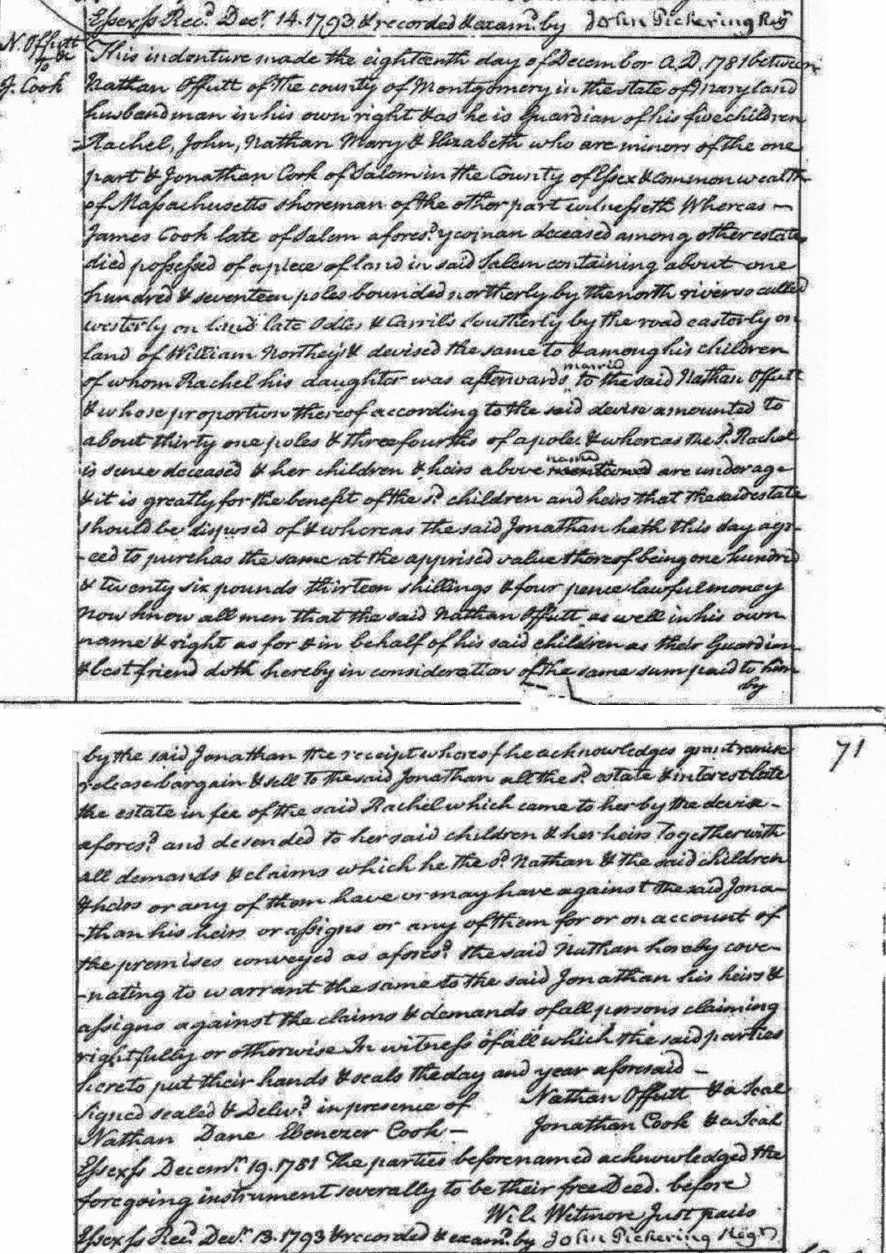 Essex ss Rec.d Dec.r 14. 1793 & recorded & exam.d by John Pickering Reg.r
N. Offutt &c
to
J. Cook
This indenture made the eighteenth day of December A.D. 1781 between
Nathan Offutt of the county of Montgomery in the state of Maryland
husbandman in his own right & as he is Guardian of his five children
Rachel, John, Nathan Mary & Elizabeth who are minors of the one
part & Jonathan Cook of Salem in the County of Essex & Commonwealth
of Massachusetts shoreman of the other part witnesseth Whereas —
James Cook late of Salem afores.d yeoman deceased among other estate
died possessed of a piece of land in said Salem containing about one
hundred & seventeen poles bounded northerly by the north river so called
westerly on land late Odles & Carrils southerly by the road easterly on
land of William Northey's & devised the same to & among his children
of whom Rachel his daughter was afterwards married to the said Nathan Offutt
& whose proportion thereof according to the said devise amounted to
about thirty one poles & three fourths of a pole & whereas the s.d Rachel
is sence deceased & her children & heirs above named mentioned are under age
& it is greatly for the benefit of the s.d children and heirs that the said estate
should be disposed of & whereas the said Jonathan hath this day agr-
-eed to purchas the same at the apprised value thereof being one hundrid
& twenty six pounds thirteen shillings & four pence lawful money
Now know all men that the said Nathan Offutt as well in his own
name & right as for & in behalf of his said children as their Guardian
& best friend doth hereby in consideration of the same sum paid to him
by
71
by the said Jonathan the receipt whereof he acknowledges grant remise
release bargain & sell to the said Jonathan all the s.d estate & interest late
the estate in fee of the said Rachel which came to her by the devise
afores.d and desended to her said children & her heirs Together with
all demands & claims which he the s.d Nathan & the said children
& heirs or any of them have or may have against the said Jona-
-than his heirs or assigns or any of them for or on account of
the premises conveyed as afores.d the said Nathan hereby cove-
-nating to warrant the same to the said Jonathan his heirs &
assigns against the claims & demands of all persons claiming
rightfully or otherwise In witness of all which the said parties
hereto put their hands & seals the day and year aforesaid —
Signed sealed & Deliv.d in presence of Nathan Offutt & a Seal
Nathan Dane Ebenezer Cook — Jonathan Cook & a Seal
Essex ss Decem.r 19. 1781 The parties before named acknowledged the
foregoing instrument severally to be their free Deed. before
W.l. Wetmore Just pacis
Essex ss Rec.d Dec.r 13. 1793 & recorded & exam.d by John Pickering Reg.r